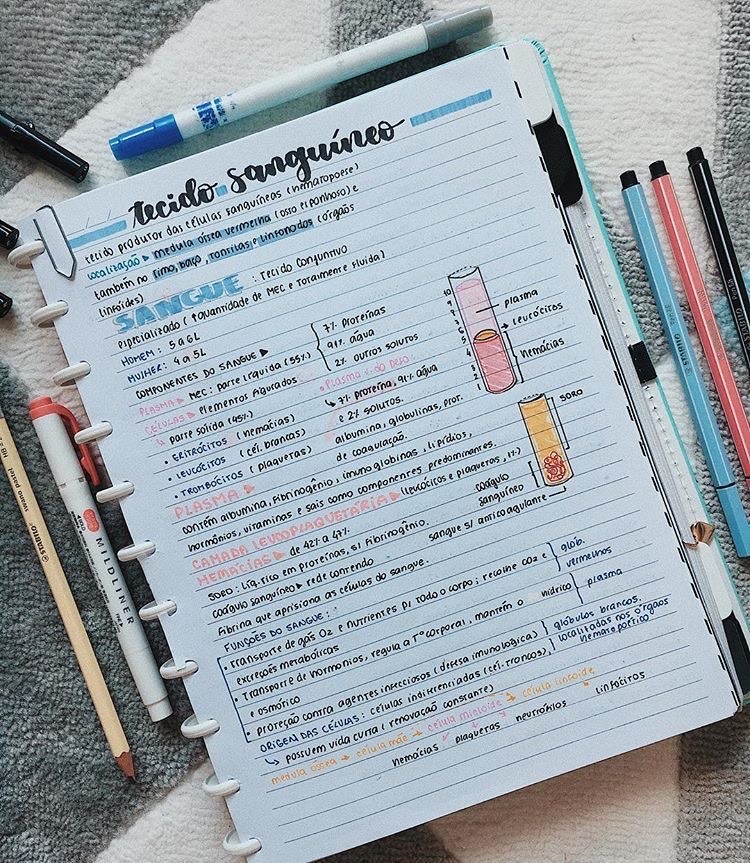 tecido sanguíneo
tecido produtor das células sanguíneas (hematopoese)
LOCALIZAÇÃO ▸ medula óssea vermelha (osso esponhoso) e
também no timo, baço, tonsilas e linfonodos (órgãos
linfoides)
SANGUE : Tecido conjuntivo
especializado (↑quantidade de MEC e totalmente fluida)
HOMEM: 5 a 6L
MULHER: 4 a 5L
COMPONENTES DO SANGUE ▸
7% proteínas
91% água
2% outros solutos
PLASMA ▸ MEC: parte líquida (55%)
CÉLULAS ▸ elementos figurados
↳ parte sólida (45%)
• plasma % do peso:
↳ 7% proteína, 91% água
e 2% solutos.
• ERITRÓCITOS (hemácias)
• LEUCÓCITOS (cél. brancas)
• TROMBÓCITOS (plaquetas)
albumina, globulinas, prot.
de coagulação.
PLASMA ▸
contém albumina, fibrinogênio, imunoglobinas, lipídios,
hormônios, vitaminas e sais como componentes predominantes.
CAMADA LEUCOPLAQUETÁRIA ▸ (leucócitos e plaquetas, 1%)
HEMÁCIAS ▸ de 42% a 47%
SORO: Líq. rico em proteínas, s/ fibrinogênio.
coágulo sanguíneo ▸ rede contendo
fibrina que aprisiona as células do sangue.
FUNÇÕES DO SANGUE:
• Transporte de gás O2 e nutrientes p/ todo o corpo; recolhe CO2 e
excreções metabólicas
glób.
vermelhos
• Transporte de hormônios, regula a Tº corporal, mantém o hídrico
e osmórico
plasma
• proteção contra agentes infecciosos (defesa imunológica)
glóbulos brancos.
ORIGEM DAS CÉLULAS: células indiferenciadas (cél. troncos),
localizadas nos órgãos
hematopoético
↳ possuem vida curta (renovação constante)
medula óssea → célula mãe → célula mieloide → célula linfoide
hemácias plaquetas neutrófilos linfócitos
plasma
leucócitos
hemácias
SORO
coágulo
sanguíneo
sangue s/ anticoagulante
MILDLINER
STABILO
swano pastel
HB
STABILO